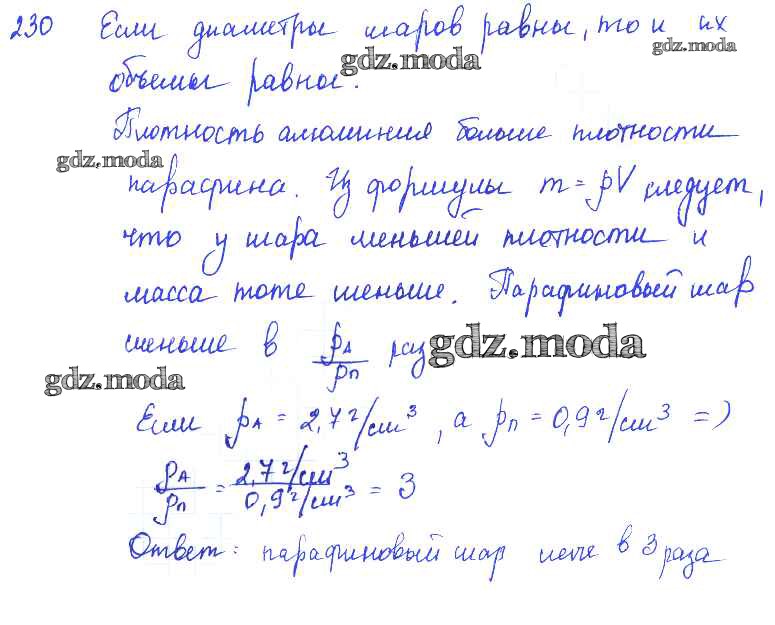 230 Если диаметры шаров равны, то и их
gdz.moda
gdz.moda
объемы равны.
Плотность алюминия больше плотности
gdz.moda
парафина. Из формулы m = ρV следует,
что у шара меньшей плотности и
масса тоже меньше. Парафиновый шар
меньше в ρА/ρп раз
gdz.moda
gdz.moda
Если ρА = 2,7 г/см³, а ρп = 0,9 г/см³ =>
ρА/ρп = 2,7 г/см³/0,9 г/см³ = 3
Ответ: парафиновый шар легче в 3 раза